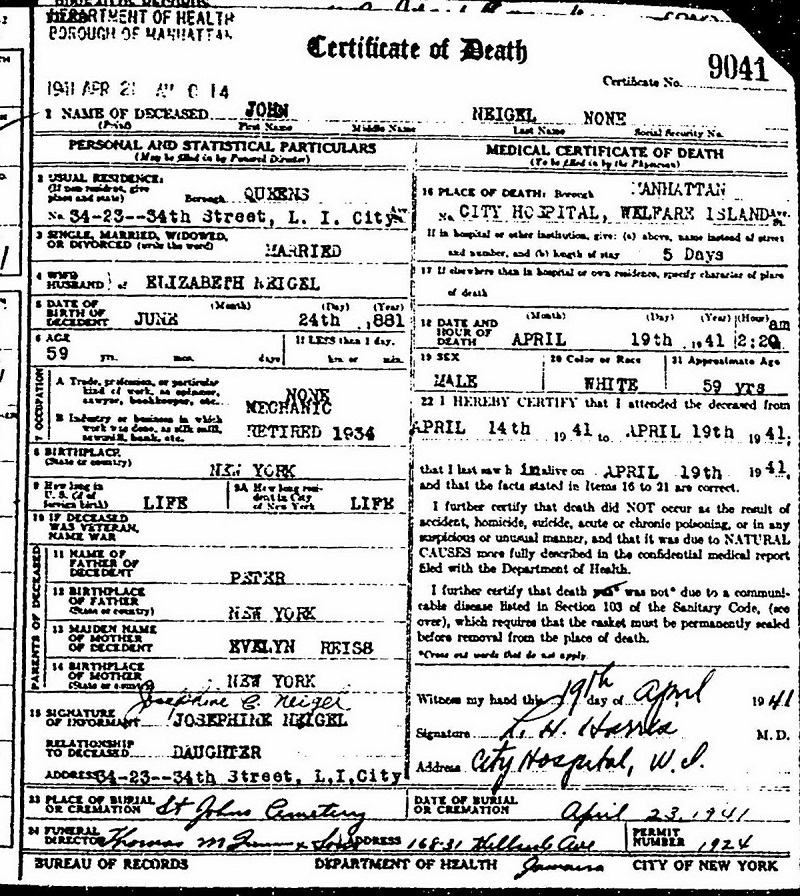 DEPARTMENT OF HEALTH
BOROUGH OF MANHATTAN
Certificate of Death
1941 APR 21 AM 14
Certificate No. 9041
1 NAME OF DECEASED JOHN NEIGEL NONE
(Print) First Name Middle Name Last Name Social Security No.
PERSONAL AND STATISTICAL PARTICULARS
(May be filled in by Funeral Director)
2 USUAL RESIDENCE:
(If non resident, give
place and state) Borough QUEENS
No. 34-23--34th Street, L. I. City Ave. St.
3 SINGLE, MARRIED, WIDOWED,
OR DIVORCED (write the word) MARRIED
4 WIFE
HUSBAND } of ELIZABETH NEIGEL
5 DATE OF (Month) (Day) (Year)
BIRTH OF
DECEDENT JUNE 24th 1881
6 AGE If LESS than 1 day,
59 yrs. mos. days hrs. or min.
7 OCCUPATION
A Trade, profession, or particular
kind of work, as spinner,
sawyer, bookkeeper, etc. NONE
MECHANIC
B Industry or business in which
work was done, as silk mill,
sawmill, bank, etc. RETIRED 1934
8 BIRTHPLACE
(State or country) NEW YORK
9 How long in
U. S. (if of
foreign birth) LIFE
9A How long resi-
dent in City
of New York LIFE
10 IF DECEASED
WAS VETERAN,
NAME WAR
PARENTS OF DECEASED
11 NAME OF
FATHER OF
DECEDENT PETER
12 BIRTHPLACE
OF FATHER
(State or country) NEW YORK
13 MAIDEN NAME
OF MOTHER
OF DECEDENT EVELYN REISS
14 BIRTHPLACE
OF MOTHER
(State or country) NEW YORK
Josephine C. Neigel
15 SIGNATURE
OF INFORMANT JOSEPHINE NEIGEL
RELATIONSHIP
TO DECEASED DAUGHTER
ADDRESS 34-23--34th Street, L.I.City
MEDICAL CERTIFICATE OF DEATH
(To be filled in by the Physician)
16 PLACE OF DEATH: Borough MANHATTAN
No. CITY HOSPITAL, WELFARE ISLAND Ave. St.
If in hospital or other institution, give: (a) above, name instead of street
and number, and (b) length of stay 5 Days
17 If elsewhere than in hospital or own residence, specify character of place
of death
18 DATE AND (Month) (Day) (Year) (Hour) am
HOUR OF
DEATH APRIL 19th 1941 2:20
19 SEX 20 Color or Race 21 Approximate Age
MALE WHITE 59 yrs
22 I HEREBY CERTIFY that I attended the deceased from
APRIL 14th 1941 to APRIL 19th 1941;
that I last saw h im alive on APRIL 19th 1941,
and that the facts stated in Items 16 to 21 are correct.
I further certify that death did NOT occur as the result of
accident, homicide, suicide, acute or chronic poisoning, or in any
suspicious or unusual manner, and that it was due to NATURAL
CAUSES more fully described in the confidential medical report
filed with the Department of Health.
I further certify that death was* was not* due to a communi-
cable disease listed in Section 103 of the Sanitary Code, (see
over), which requires that the casket must be permanently sealed
before removal from the place of death.
*Cross out words that do not apply
Witness my hand this 19th day of April 1941
Signature H. Harris M. D.
Address City Hospital, W. I.
23 PLACE OF BURIAL
OR CREMATION St Johns Cemetery
DATE OF BURIAL
OR CREMATION April 23, 1941
24 FUNERAL
DIRECTOR Thomas M & Sons ADDRESS 168-31 Hillside Ave
Jamaica
PERMIT
NUMBER 1924
BUREAU OF RECORDS DEPARTMENT OF HEALTH CITY OF NEW YORK